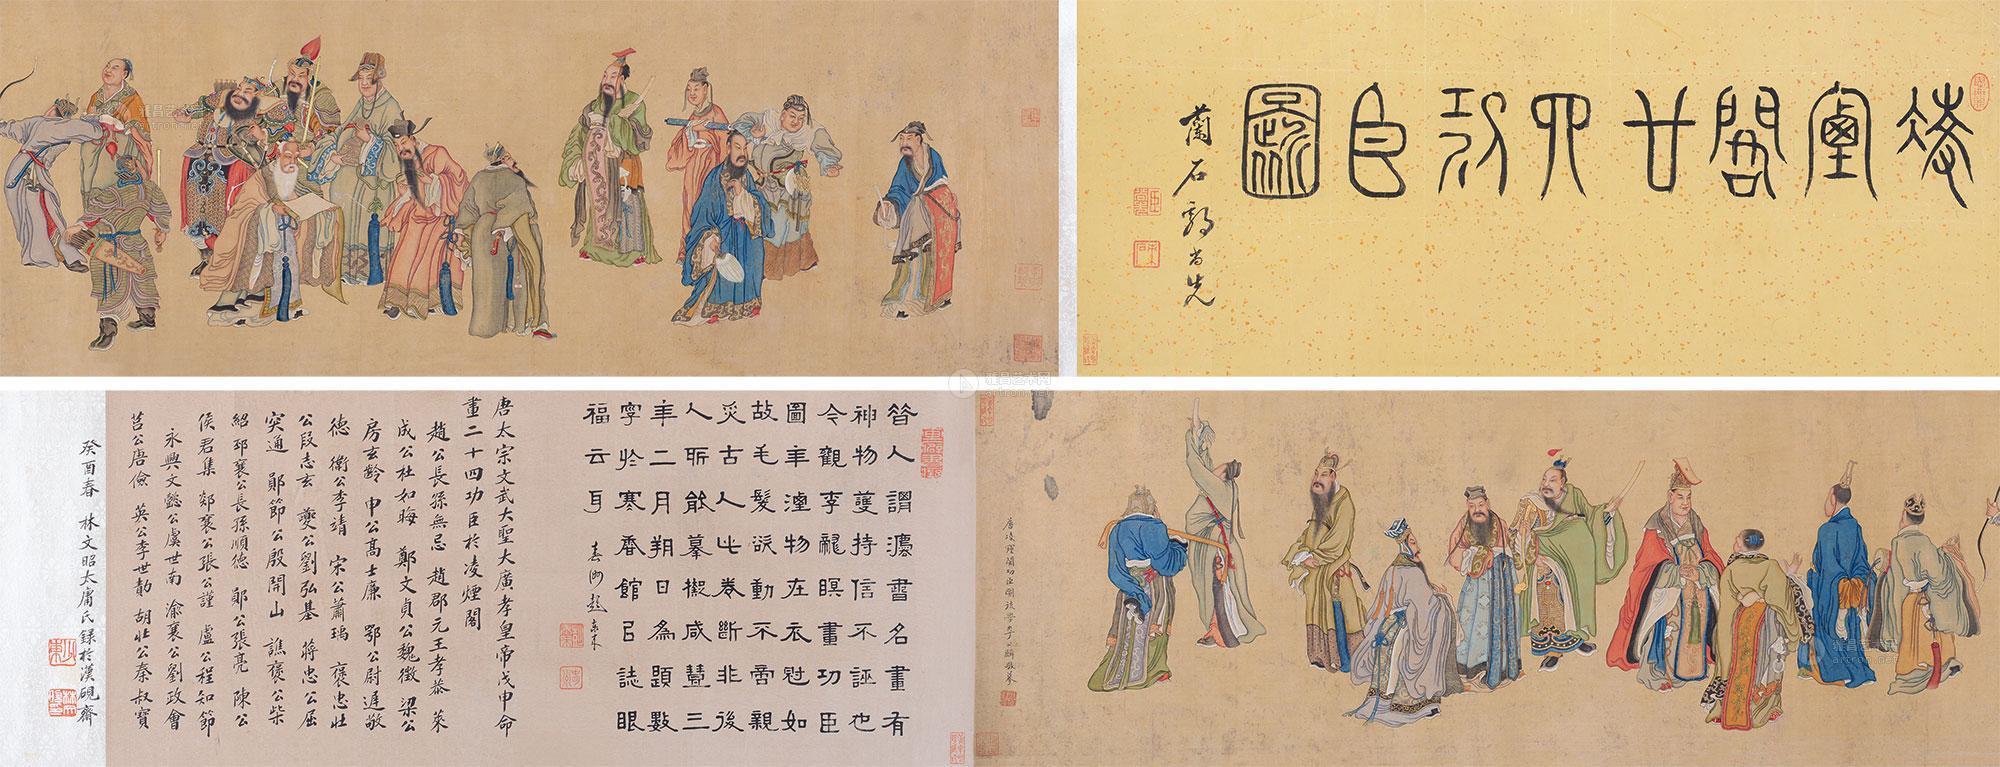 凌煙閣廿四功臣圖
蘭石郭尚先
唐凌煙閣功臣圖後學李公麟敬摹
昔人謂灋書名畫有
神物護持信不誣也
今觀李龍瞑畫功臣
圖年湮物在衣冠如
故毛髮欲動不啻親
炙古人此卷斷非後
人所能摹擬咸豐三
年二月朔日為題數
字於寒香館以誌眼
福云耳
唐太宗文武大聖大廣孝皇帝戊申命
畫二十四功臣於凌煙閣
趙公長孫無忌 趙郡元王孝恭 萊
成公杜如晦 鄭文貞公魏徵 梁公
房玄齡 申公高士廉 鄂公尉遲敬
德 衛公李靖 宋公蕭瑀 褒忠壯
公段志玄 夔公劉弘基 蔣忠公屈
突通 鄖節公殷開山 譙襄公柴
紹 邳襄公長孫順德 鄖公張亮 陳公
侯君集 郯襄公張公謹 盧公程知節
永興文懿公虞世南 渝襄公劉政會
莒公唐儉 英公李世勣 胡壯公秦叔寶
癸酉春 林文昭太庸氏錄於漢硯齋
雅昌艺术网
artron.net